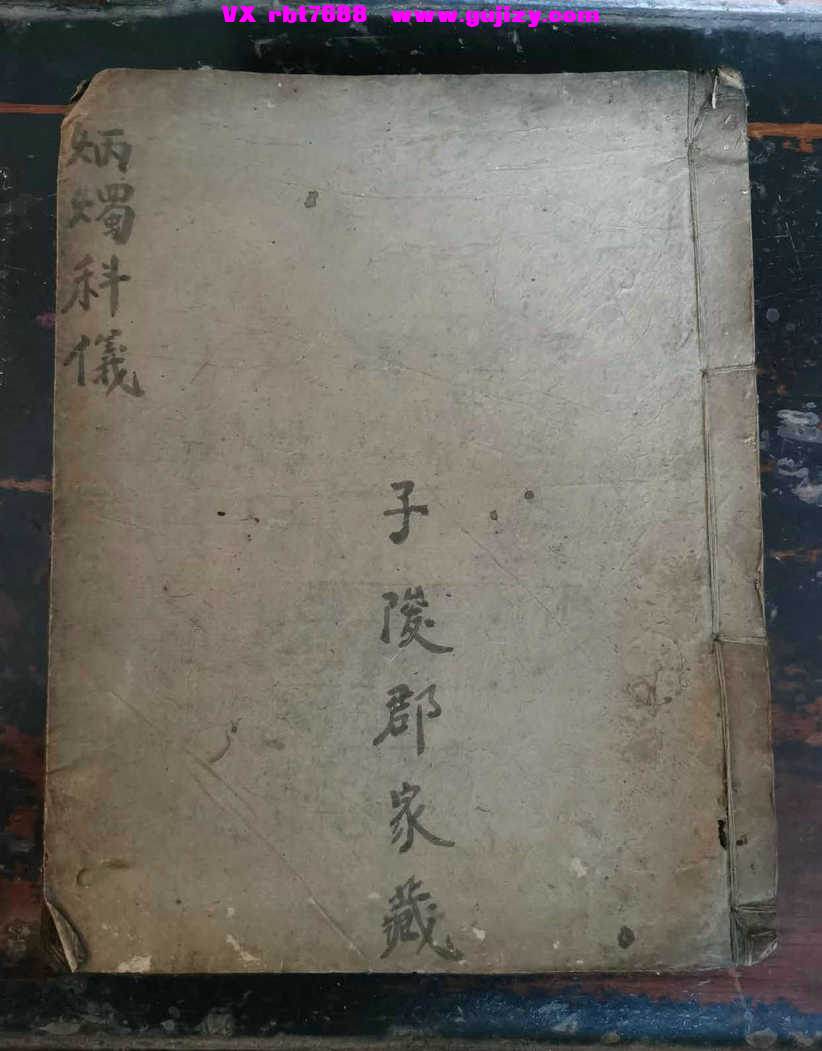 VX rbt7888 www.gujizy.com
炳燭科儀
子陵郡家藏